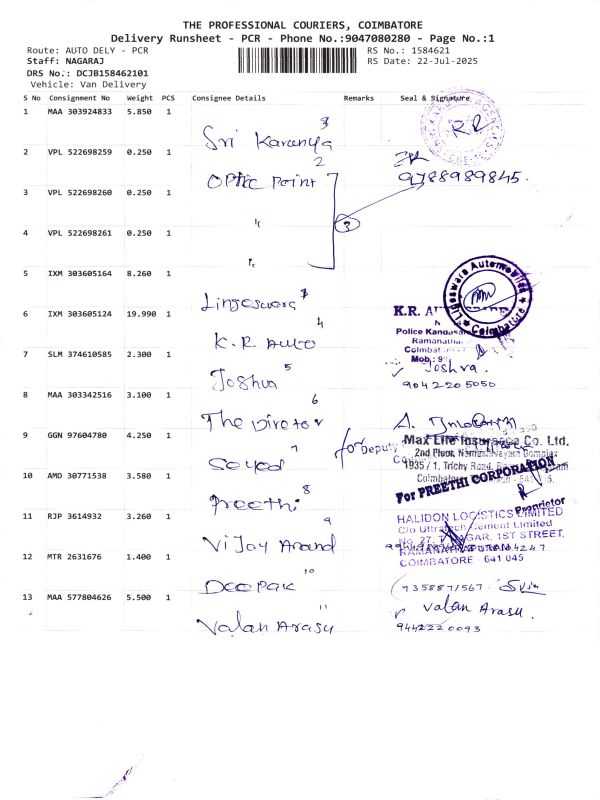 THE PROFESSIONAL COURIERS, COIMBATORE
Delivery Runsheet - PCR - Phone No.:9047080280 - Page No.:1
Route: AUTO DELY - PCR
RS No.: 1584621
Staff: NAGARAJ
RS Date: 22-Jul-2025
DRS No.: DCJB158462101
Vehicle: Van Delivery
S No Consignment No Weight PCS Consignee Details Remarks Seal & Signature
1 MAA 303924833 5.850 1
Sri Karunya 3
2 VPL 522698259 0.250 1
OPTIC POINT 2
9788989845.
3 VPL 522698260 0.250 1
" 3
4 VPL 522698261 0.250 1
"
5 IXM 303605164 8.260 1
Lingeswara
Lingeswara Automobiles
Coimbatore
6 IXM 303605124 19.990 1
K.R AUTO 4
K.R.
Police
Mob.: 9
7 SLM 374610585 2.300 1
Joshua 5
Joshva.
9042205050
8 MAA 303342516 3.100 1
The Director 6
A.
9 GGN 97604780 4.250 1
Seyed 7
for Deputy
Max Life Insurance Co. Ltd.
2nd Floor, Complex
1935 / 1, Trichy Road,
Coimbatore
10 AMD 30771538 3.580 1
Preethi 8
For PREETHI CORPORATION
Proprietor
11 RJP 3614932 3.260 1
Vijay Anand 9
HALIDON LOGISTICS LIMITED
C/o Ultratech Cement Limited
No. 27, NAGAR, 1ST STREET,
RAMANATHAPURAM
COIMBATORE 641 045
12 MTR 2631676 1.400 1
Deepak 10
7358871567
13 MAA 577804626 5.500 1
Valan Arasu 11
Valan Arasu.
9442220093